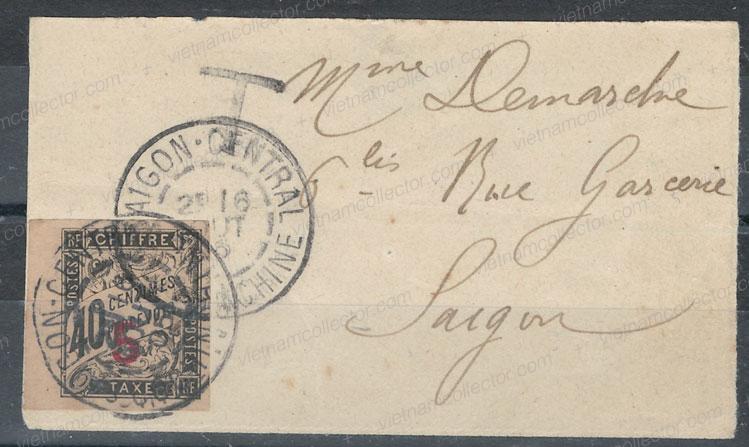 T
Mme Demarche
6 bis Rue Garcerie
Saigon
SAIGON-CENTRAL
2E 16
CHINE
RF CHIFFRE
POSTES
POSTES
CENTIMES
40
5
TAXE RF
vietnamcollector.com